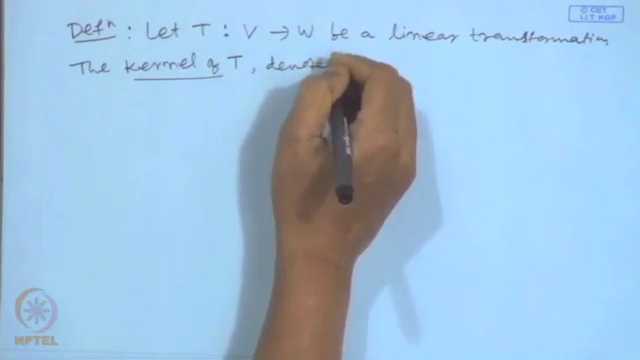 © CET
I.I.T. KGP
Defⁿ : Let T : V → W be a linear transformation,
The kernel of T, denote
NPTEL